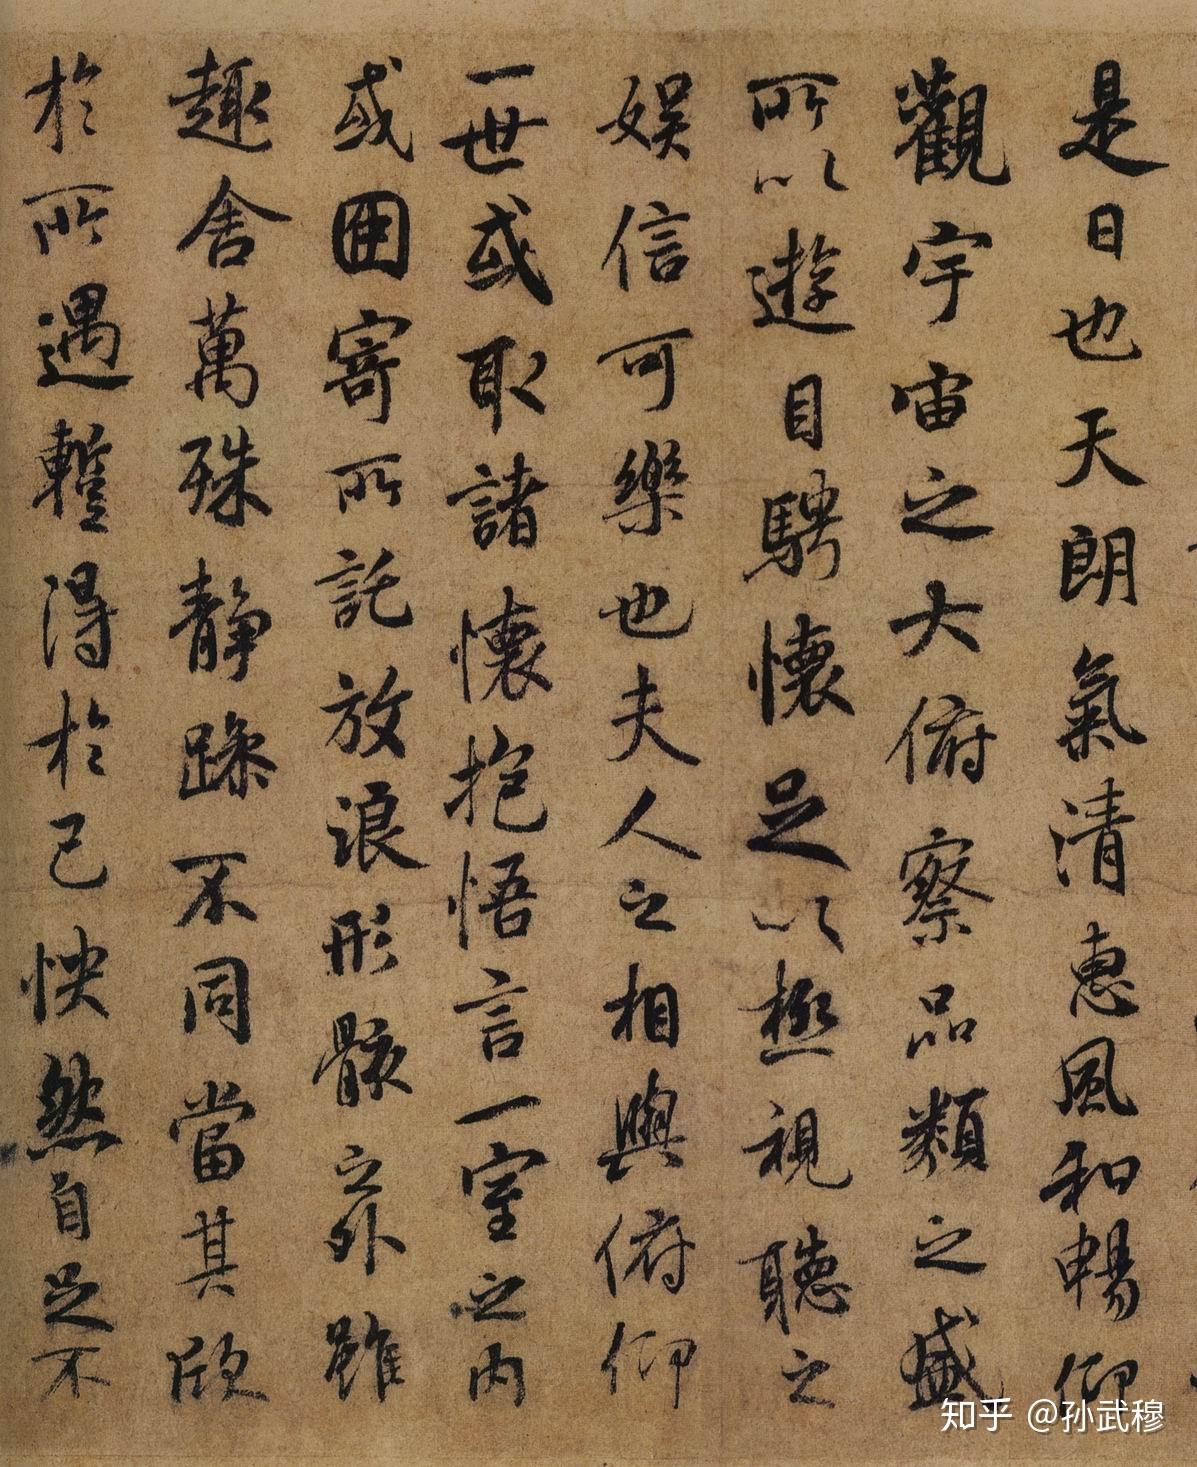 是日也天朗氣清惠風和暢仰
觀宇宙之大俯察品類之盛
所以遊目騁懷足以極視聽之
娛信可樂也夫人之相與俯仰
一世或取諸懷抱悟言一室之內
或因寄所託放浪形骸之外雖
趣舍萬殊靜躁不同當其欣
於所遇暫得於己快然自足不
知乎 @孙武穆